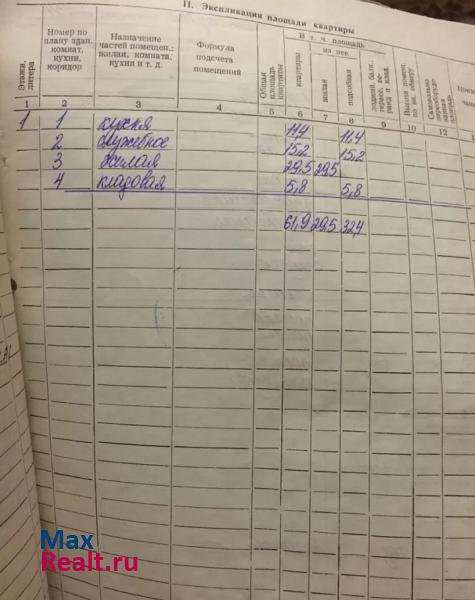 II. Экспликация площади квартиры
Этажи, литера
Номер по плану здан. комнат, кухни, коридор
Назначение частей помещен.: жилая, комната, кухни и т. д.
Формула подсчета помещений
Общая площадь квартиры
В т. ч. площадь
квартиры
из нее
жилая
подсобная
лоджий, балк.
Высота помещ. по вн. обмеру
Самовольно
площадь
1 2 3 4 5 6 7 8 9 10 11 12
1 1 кухня 11,4 11,4
2 служебное 15,2 15,2
3 жилая 29,5 29,5
4 кладовая 5,8 5,8
61,9 29,5 32,4
Max
Realt.ru